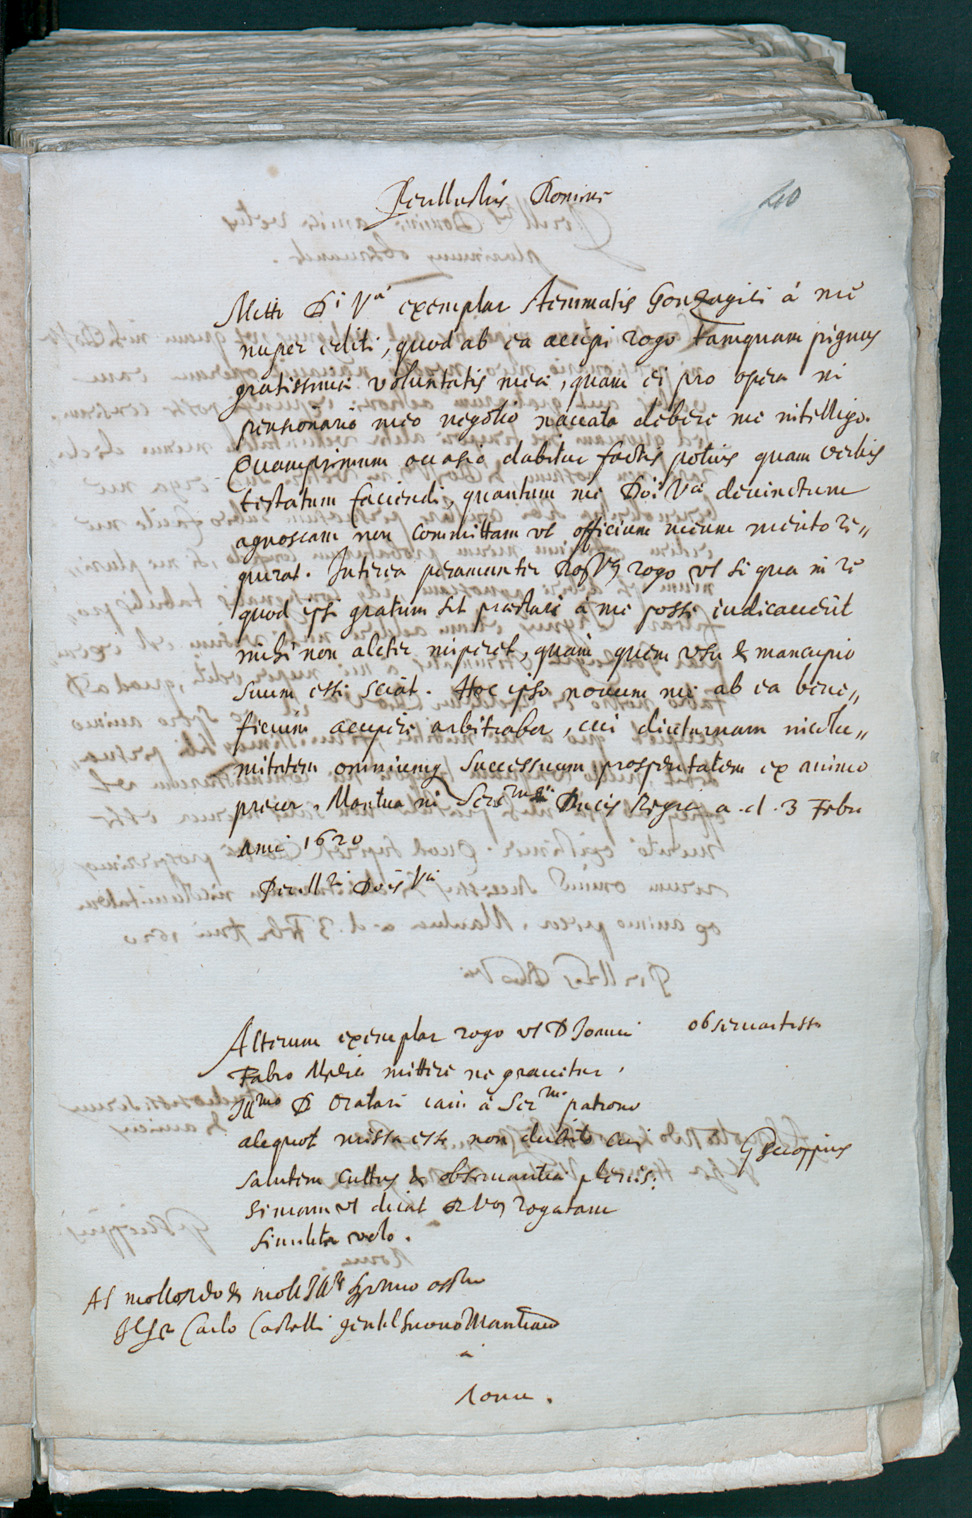 Perillustris Domine
40
Mitto D. Vae exemplar Stemmatis Gonzagici à me
nuper editi, quod ab ea accipi rogo tamquam pignus
gratissimae voluntatis meae, quam ei pro opera in
pensionario meo negotio navata debere me intelligo.
Quamprimum occasio dabitur factis potius quam verbis
testatum faciendi, quantum me Doi Vae devinctum
agnoscam non committam ut officium meum merito re„
quirat. Interea peramanter Dog Vam rogo ut si qua in re
quod ipsi gratum sit praestari à me posse iudicaverit
mihi non aliter imperet, quam quem usu & mancipio
suum esse sciat. Hoc ipso novum me ab ea bene„
ficium accipere arbitrabor, cui diuturnam incolu„
mitatem omniumq successuum prosperitatem ex animo
precor. Mantua in Sermi Ducis Regia a. d. 3 Febr
Anni 1620
Perillris Dois Vae
Alterum exemplar rogo ut D Joanni
Fabro mittere ne gravetur,
Illmo D Oratori iam à Sermo patrono
aliquot missa esse non dubito cui
salutem cultus & observantiae pleniss:
simam ut dicat D Vam rogatam
similiter volo.
observantiss
G Scioppius
Al mollo Rdo & molto Illre Sr mio ossmo
Il Sr Carlo Castelli gentilhuomo Mantuano
à
Roma.